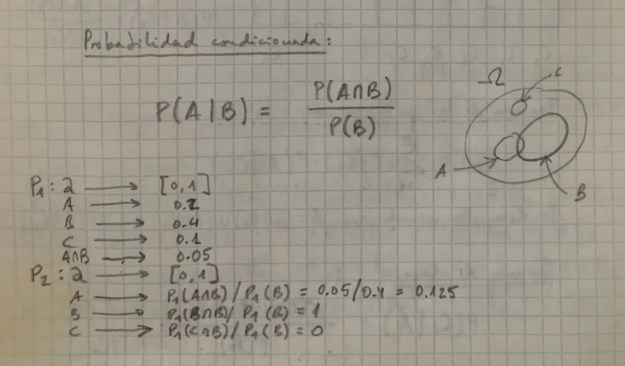 Probabilidad condicionada:
P(A|B) = P(A∩B) / P(B)
Ω
C
A
B
P₁: 2 → [0,1]
A → 0.2
B → 0.4
C → 0.1
A∩B → 0.05
P₂: 2 → [0,1]
A → P₁(A∩B)/P₁(B) = 0.05/0.4 = 0.125
B → P₁(B∩B)/P₁(B) = 1
C → P₁(C∩B)/P₁(B) = 0